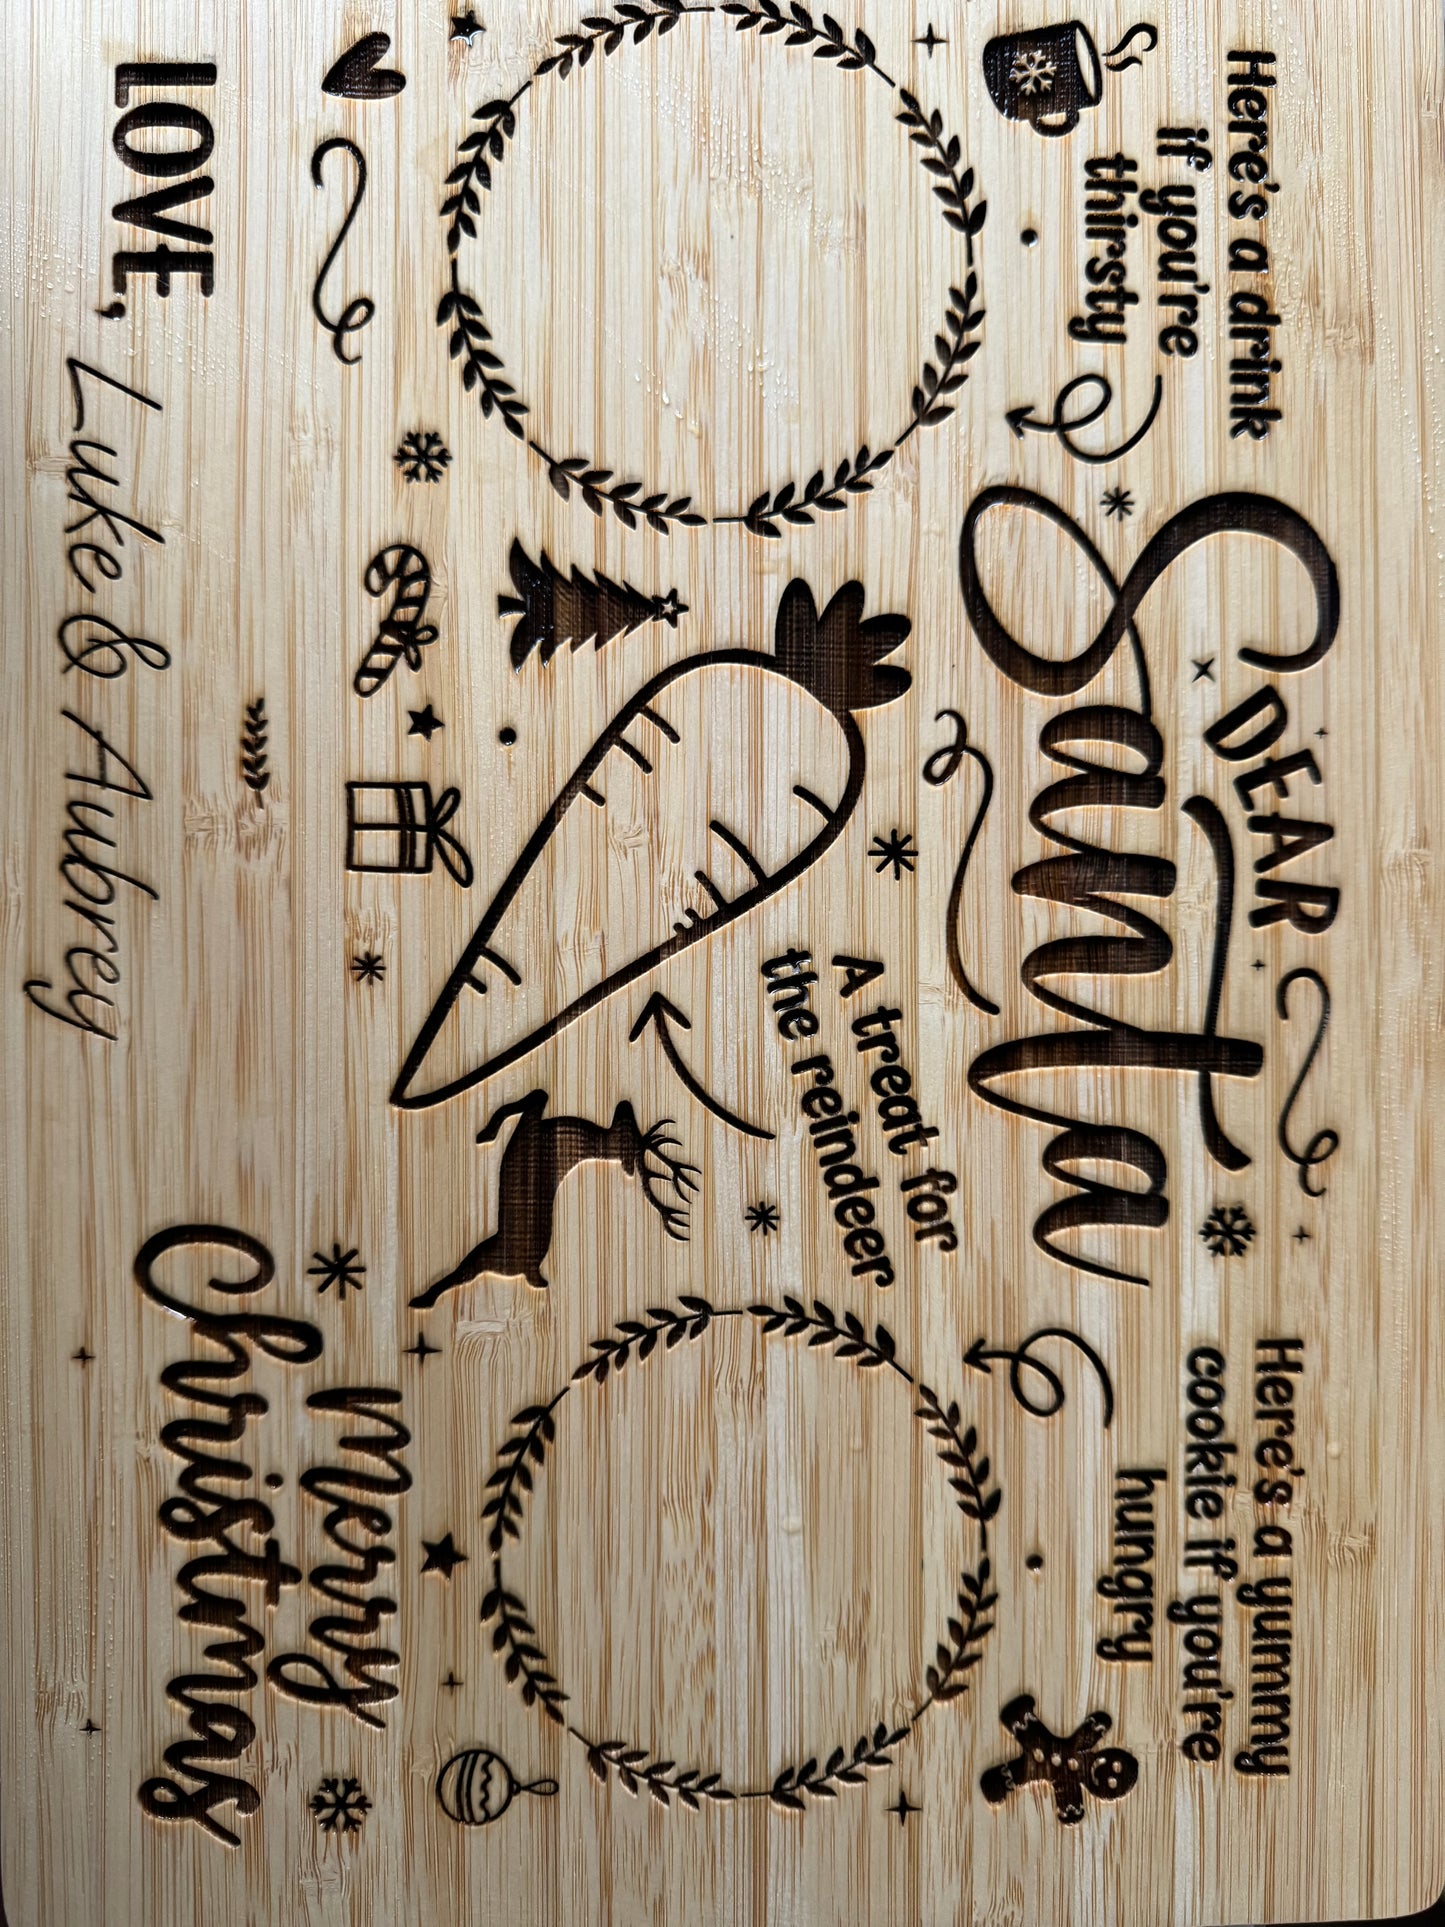 Here's a drink
if you're
thirsty
DEAR
Santa
Here's a yummy
cookie if you're
hungry
A treat for
the reindeer
LOVE, Luke & Aubrey
Merry
Christmas